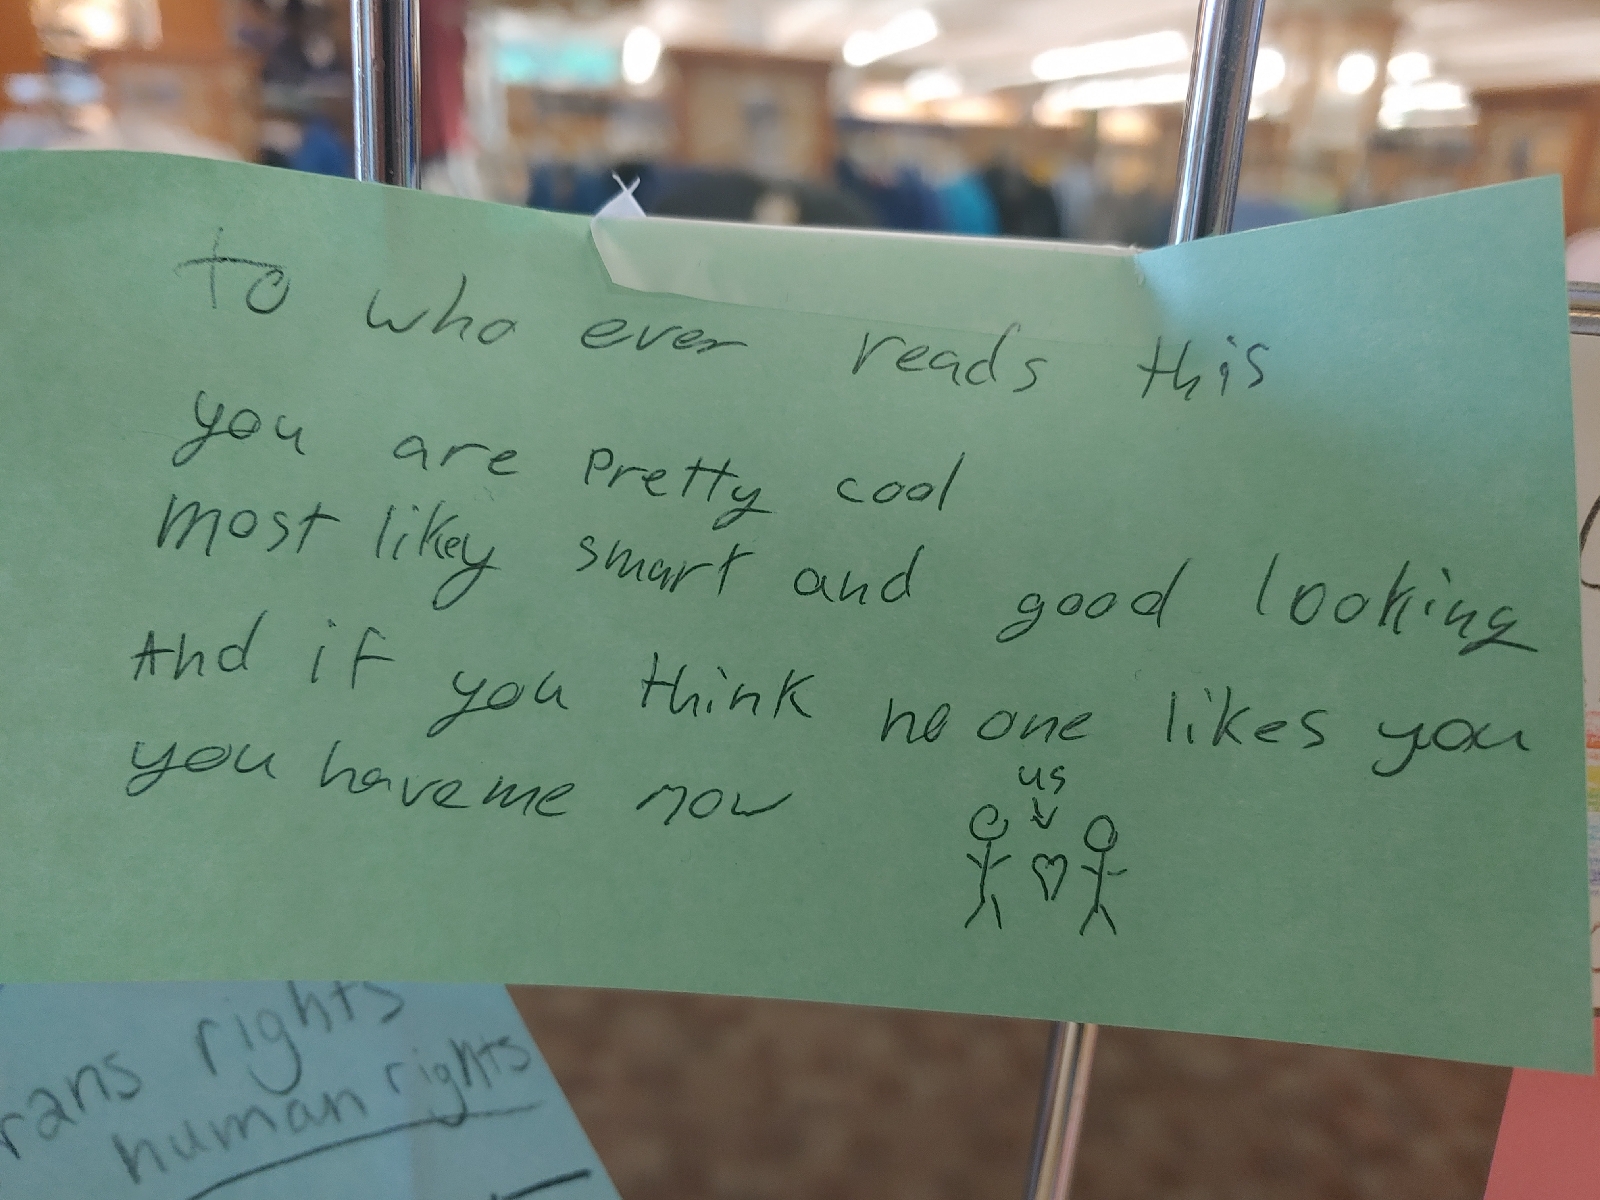 to who ever reads this
you are pretty cool
most likey smart and good looking
And if you think no one likes you
you have me now
us
rans rights
human rights